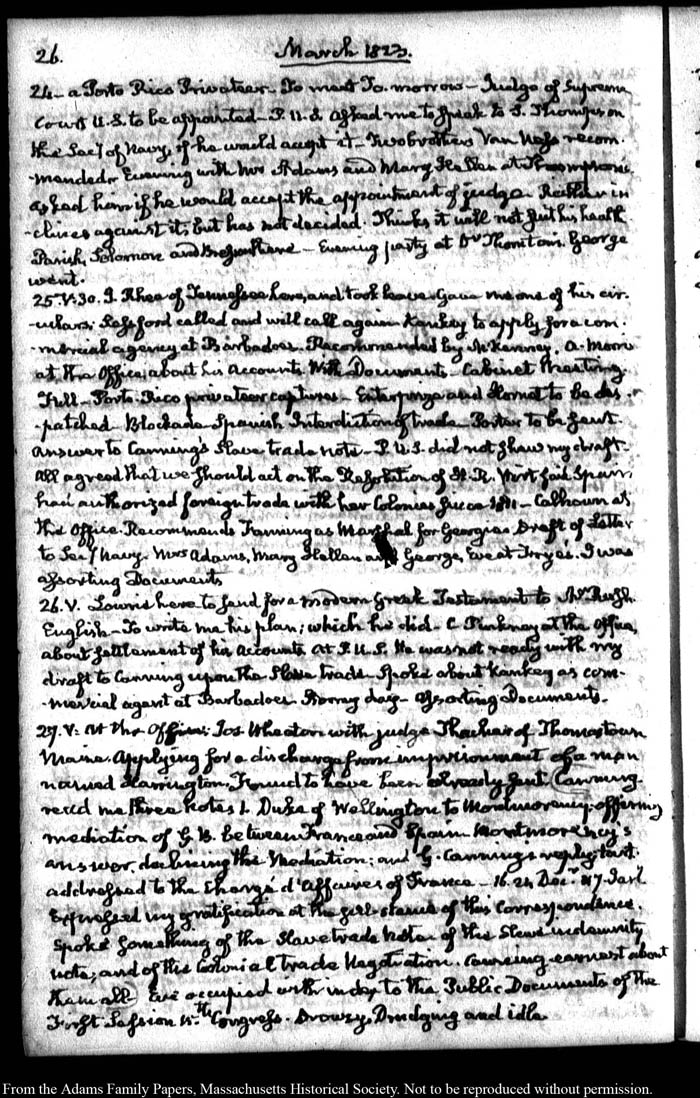 26. March 1823.
24 – a Porto Rico Privateer – To meet To-morrow – Judge of Supreme
Court U.S. to be appointed – P.U.S. asked me to speak to S. Thompson
the Secy of Navy, if he would accept it – Two brothers Van Ness recom-
-mended. Evening with Mrs Adams and Mary Hellen at Thompson's
asked him if he would accept the appointment of judge. Rather in
-clines against it, but has not decided. Thinks it will not suit his health
Parish, Solomon and – Evening party at Dr Thornton's. George
went.
25. V:30. J. Rhea of Tennessee here, and took leave. Gave me one of his cir-
-culars. called and will call again. Kankey to apply for a com-
-mercial agency at Barbadoes. Recommended by McKenney. A. Moore
at the Office, about his Accounts. With Documents – Cabinet Meeting.
Full – Porto-Rico privateer captures – Enterprize and Hornet to be des-
-patched. Blockade. Spanish Interdiction of trade. Porter to be sent.
Answer to Canning's Slave trade note – P.U.S. did not shew my draft.
All agreed that we should act on the Resolution of H.R. said Spain
had authorized foreign trade with her Colonies since 1811 – Calhoun at
the Office. Recommends Fanning as Marshal for Georgia. Draft of Letter
to Secy Navy. Mrs Adams, Mary Hellen and George, Eve at Frye's. I was
assorting Documents
26. V. Lowrie here to send for a modern Greek Testament to Mr Rush.
English – To write me his plan; which he did – C. Pinkney at the Office,
about settlement of his Accounts. At P.U.S. He was not ready with my
draft to Canning upon the Slave trade. Spoke about Kankey as com-
-mercial agent at Barbadoes. Stormy day – Assorting Documents.
27. V: At the Office: Jos. Wheaton with judge Thacher of Thomastown
Maine. Applying for a discharge from imprisonment of a man
named Harrington. Found to have been already sent. Canning
read me three Notes 1. Duke of Wellington to Montmorency: offering
mediation of G.B. between France and Spain. Montmorency's
answer, declining the Mediation: and G. Canning's reply
addressed to the Chargé d'Affaires of France – 16. 24 Decr. & 7. Jany
Expressed my gratification at the perusal of this Correspondence.
Spoke something of the Slave trade Note – of the Slave indemnity
note; and of the Colonial trade Negotiation. Canning earnest about
them all – Eve occupied with index to the Public Documents of the
First Session 15.th Congress. Drowzy, Drudging and idle
From the Adams Family Papers, Massachusetts Historical Society. Not to be reproduced without permission.